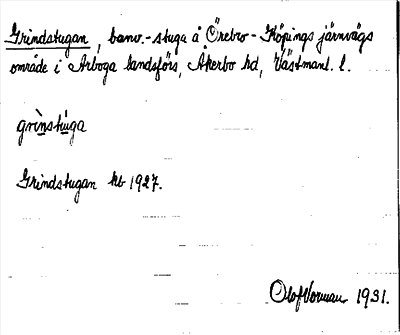 Grindstugan, banv.-stuga å Örebro-Köpings järnvägs
område i Arboga landsförs, Åkerbo hd, Västmanl. l.
grìnstùga
Grindstugan kb 1927.
Olof Vorman 1931.